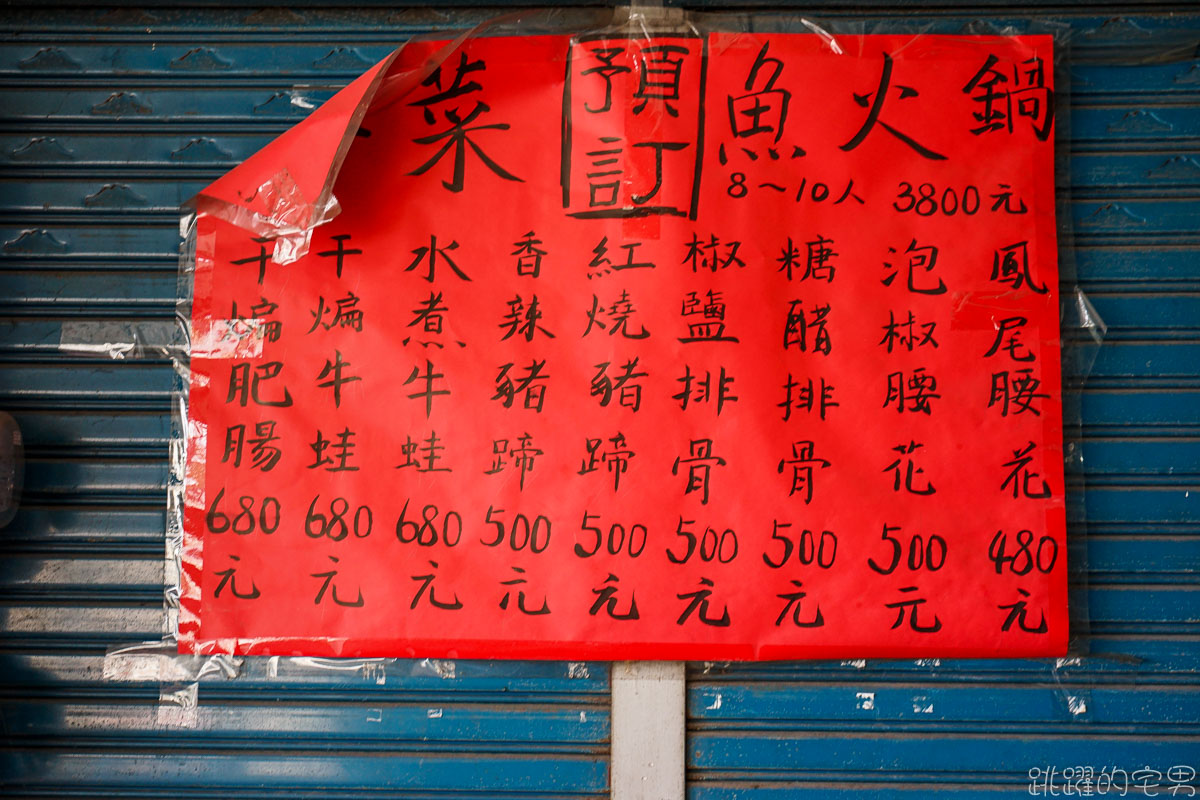 魚火鍋
8～10人 3800元
預訂
菜
鳳尾腰花480元
泡椒腰花500元
糖醋排骨500元
椒鹽排骨500元
紅燒豬蹄500元
香辣豬蹄500元
水煮牛蛙680元
干煸牛蛙680元
干煸肥腸680元
跳躍的宅男